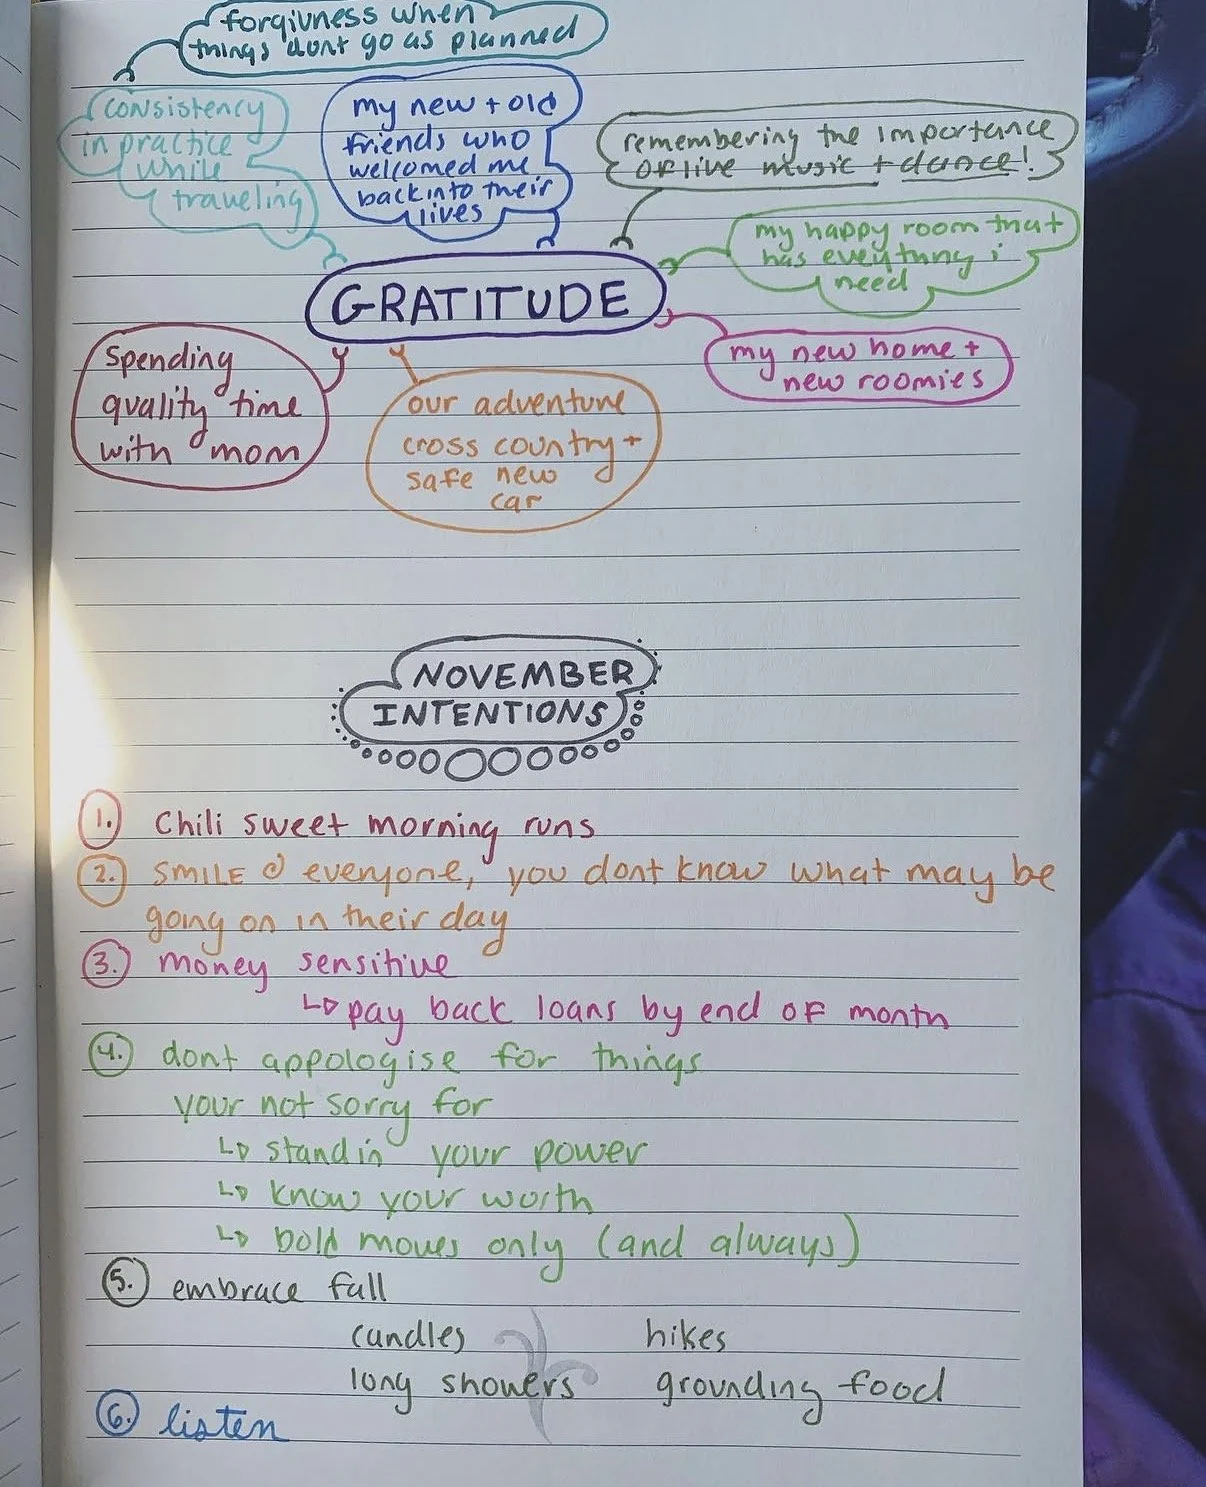 forgivness when
things dont go as planned
consistency
in practice
while
traveling
my new + old
friends who
welcomed me
back into their
lives
remembering the importance
of live music + dance!
my happy room that
has everything i
need
GRATITUDE
my new home +
new roomies
Spending
quality time
with mom
our adventure
cross country +
safe new
car
NOVEMBER
INTENTIONS
1. Chili sweet morning runs
2. SMILE @ everyone, you dont know what may be
going on in their day
3. money sensitive
↳ pay back loans by end of month
4. dont appologise for things
your not sorry for
↳ stand in your power
↳ know your worth
↳ bold moves only (and always)
5. embrace fall
candles hikes
long showers grounding food
6. listen